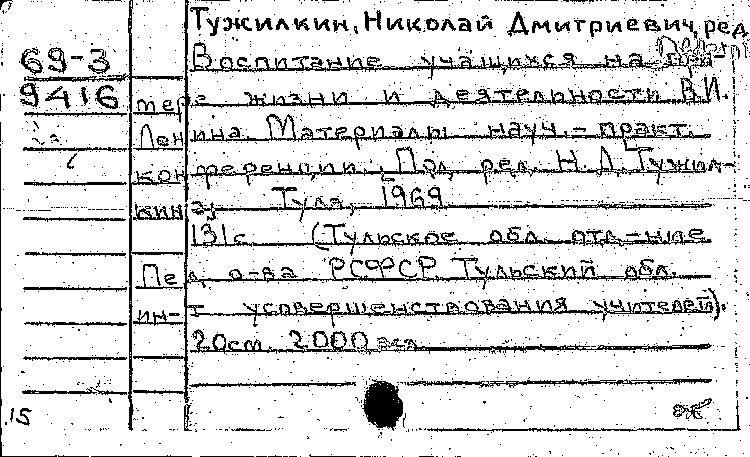 Тужилкин, Николай Дмитриевич, ред.
69-3 Воспитание учащихся на при-
9416 мере жизни и деятельности В.И.
Ленина. Материалы науч.-практ.
конференции. Под ред. Н.Д. Тужил-
кина. Тула, 1969.
131с. (Тульское обл. отд-ние
Пед. о-ва РСФСР. Тульский обл.
ин-т усовершенствования учителей).
20см. 2.000 экз.
15